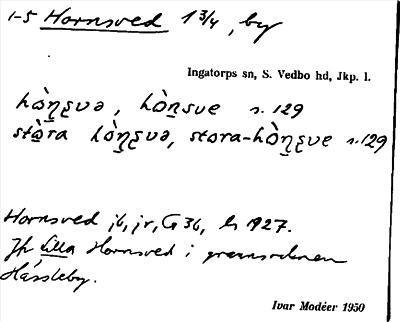 1-5 Hornsved 1 3/4, by
Ingatorps sn, S. Vedbo hd, Jkp. l.
hò̱ṉʂvə, hò̱ṉsve s. 129
sto̱ra hò̱ṉʂvə, stora-hò̱ṉʂve s. 129
Hornsved jb, jr, G 36, h 1927.
Jfr Lilla Hornsved i grannsocknen
Hässleby.
Ivar Modéer 1950